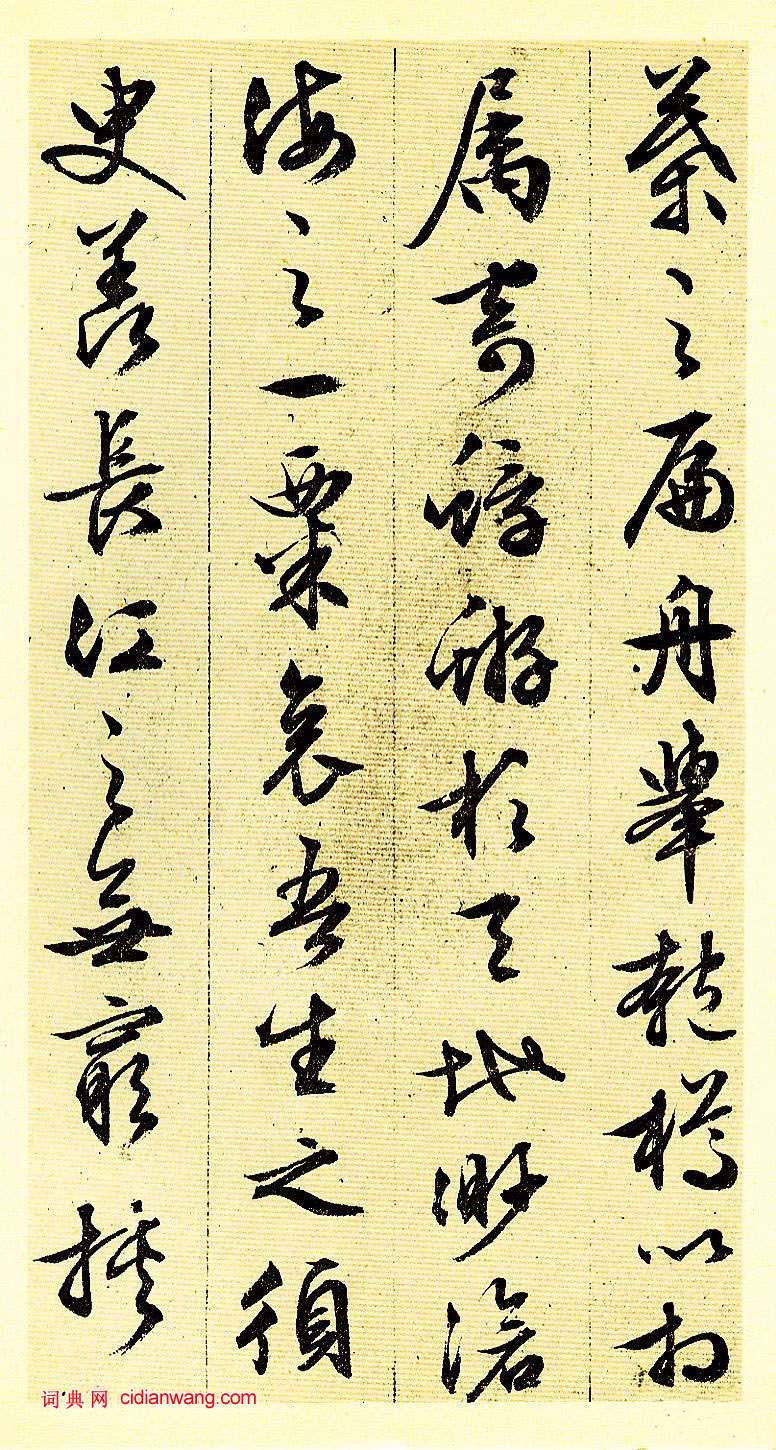 葉之扁舟舉匏樽以相
属寄蜉蝣於天地渺滄
海之一粟哀吾生之須
臾羨長江之無窮挾
词典网 cidianwang.com